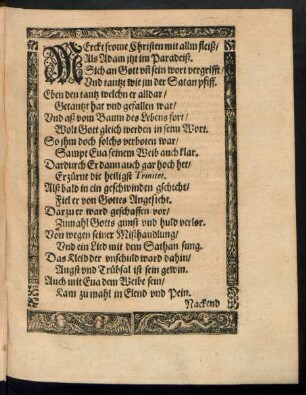 MErckt frome Christen mit allm fleiß/
Als Adam itzt im Paradeiß.
Sich an Gott vñ sein wort vergrifft/
Vnd tantzt wie jm der Satan pfiff.
Eben den tantz welchn er alldar/
Getantzt hat vnd gefallen war/
Vnd aß vom Baum des Lebens fort/
Wolt Gott gleich werden in seim Wort.
So jhm doch solchs verboten war/
Sampt Eua seinem Weib auch klar.
Dardurch Er dann auch gar hoch het/
Erzürnt die heiligst Trinitet.
Alßbald in ein geschwinden gschicht/
Fiel er von Gottes Angesicht.
Darzu er ward geschaffen vor/
Zumahl Gotts gunst vnd huld verlor.
Von wegen seiner Mißhandlung/
Vnd ein Lied mit dem Sathan sung.
Das Kleid der vnschuld ward dahin/
Angst vnd Trübsal ist sein gewin.
Auch mit Eua dem Weibe sein/
Kam zu mahl in Elend vnd Pein.
Nackend